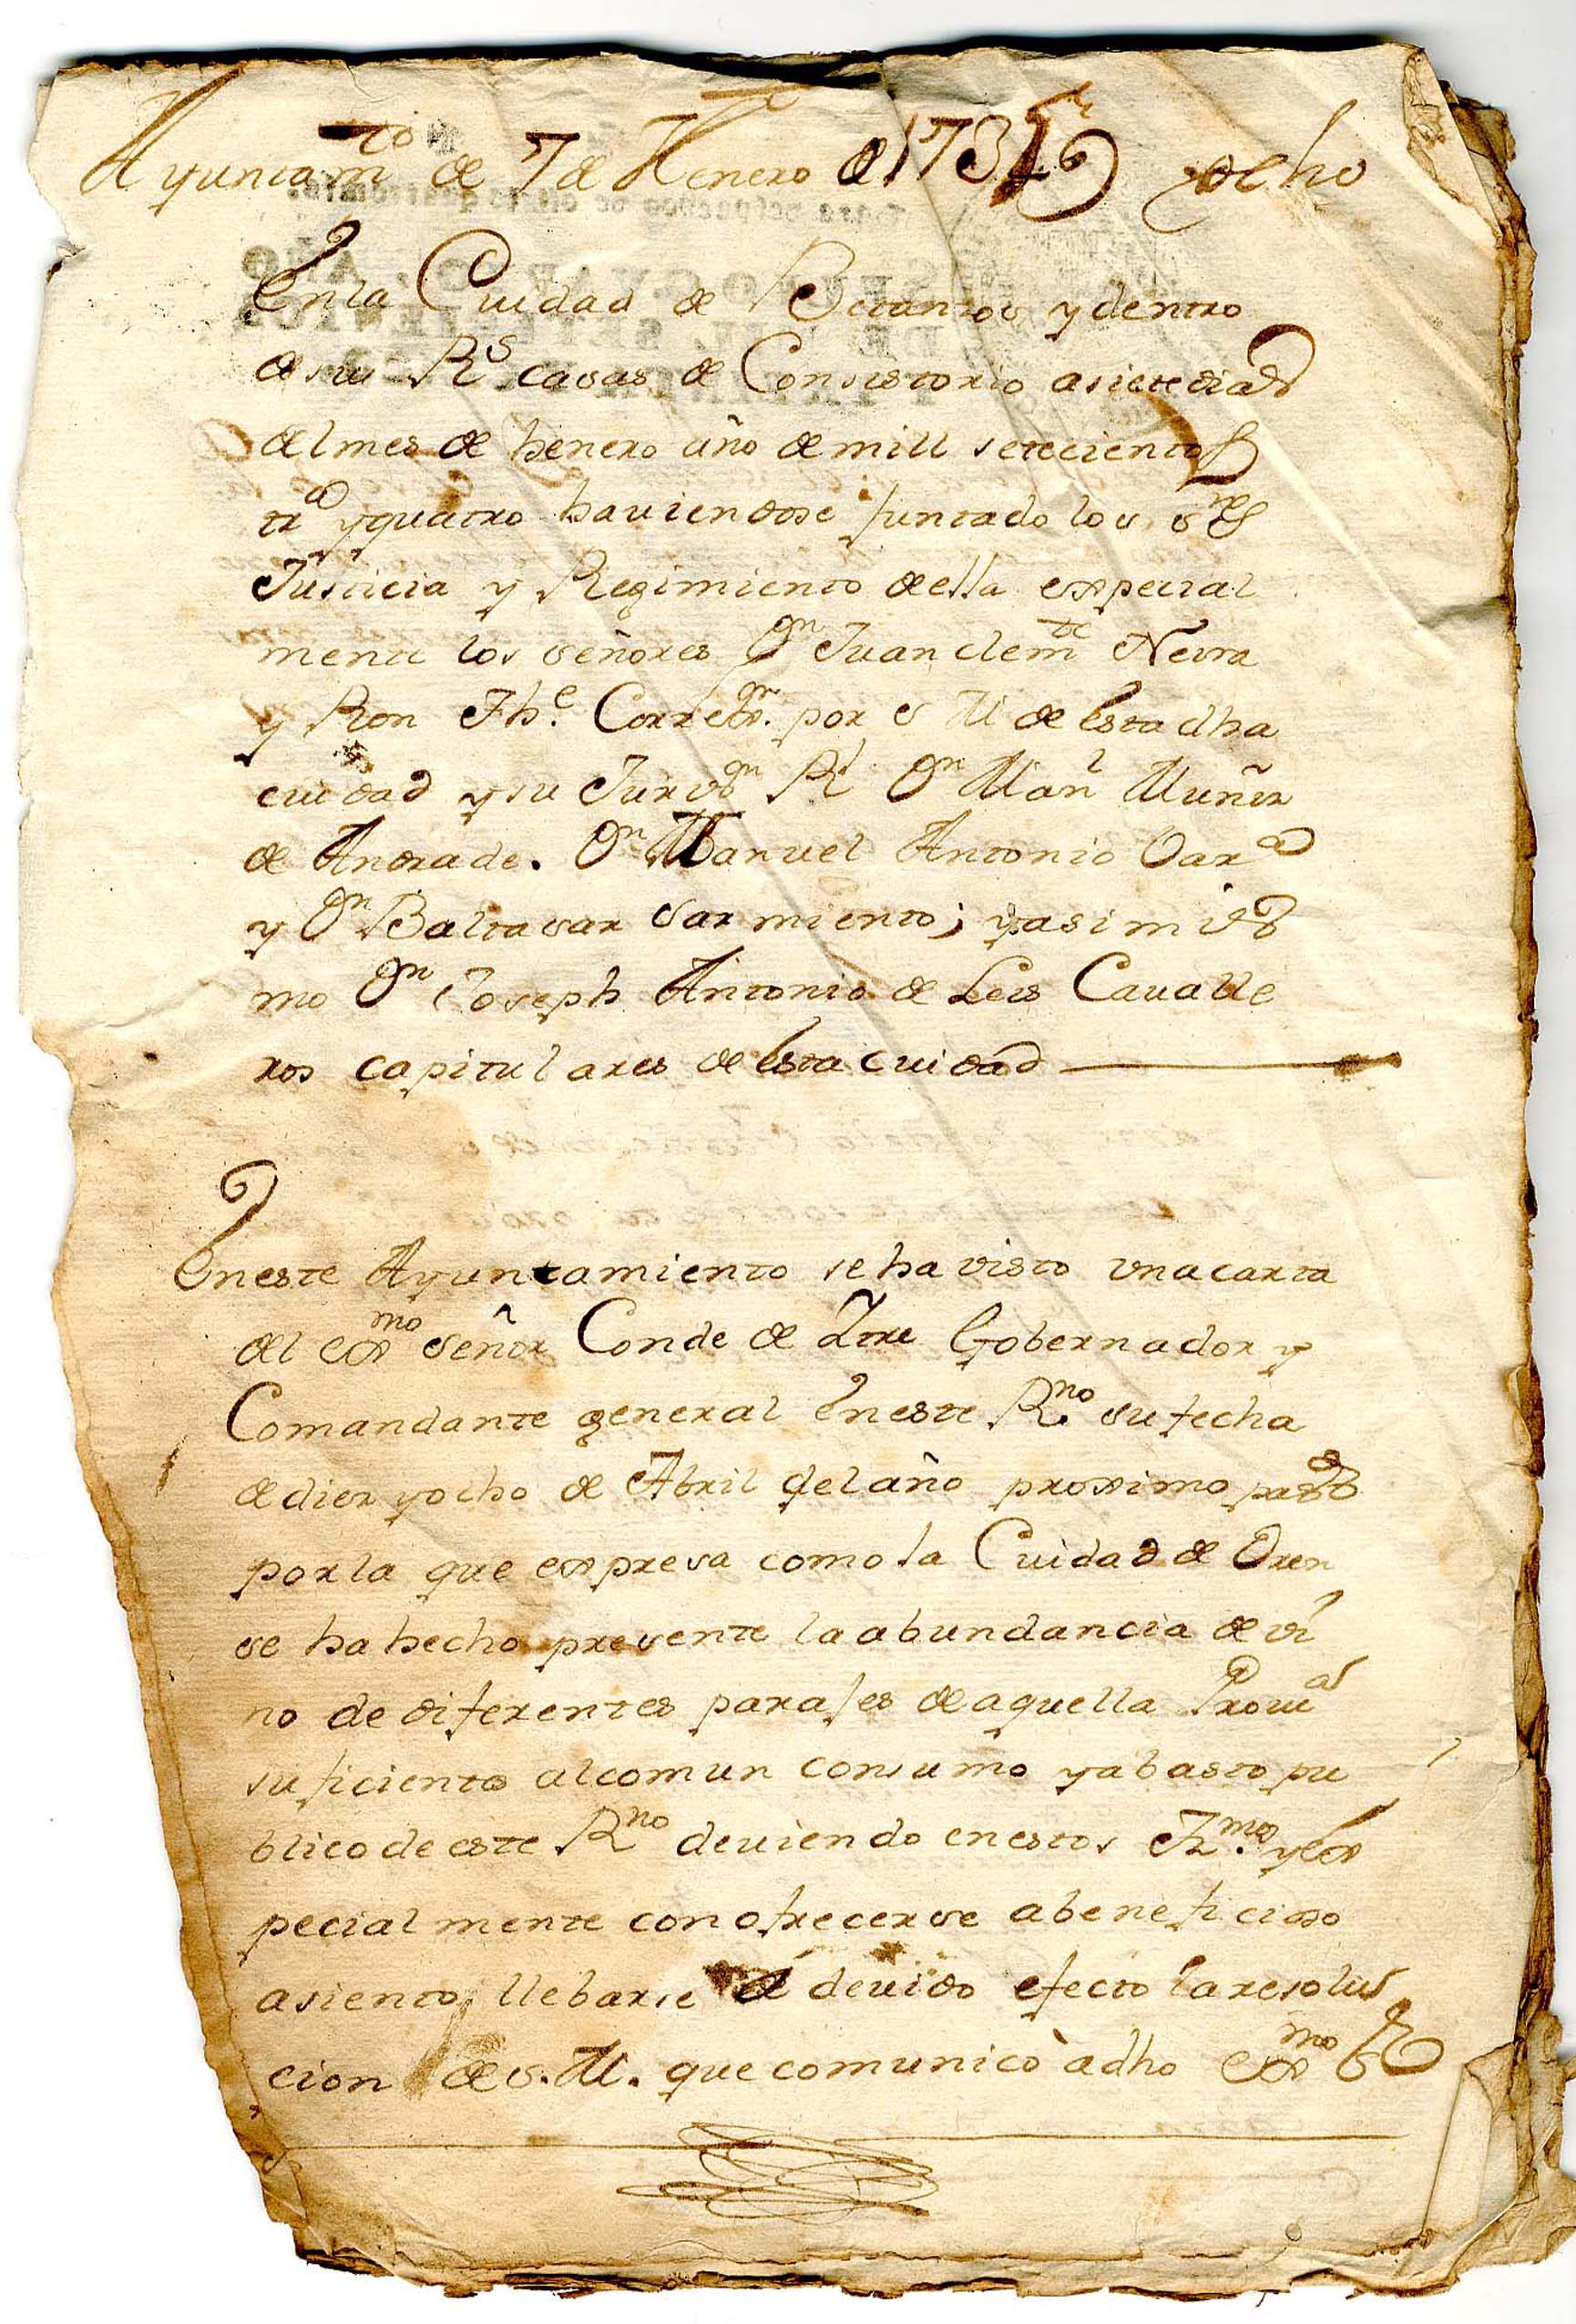 Ayuntamto de 7 de Henero de 1734 ocho
En la Ciudad de Betanzos y dentro
de sus Rs casas de Consistorio a siete dias
del mes de henero año de mill setecientos
ta y quatro haviendose juntado los sres
Justicia y Regimiento della expecial
mente los señores Dn Juan Clemte Neira
y Ron Thte Corregor por S M de esta dha
ciudad y su Jurisdon Rl Dn Manl Muñiz
de Andrade. Dn Manuel Antonio
y Dn Baltasar Sarmiento; y asimis
mo Dn Joseph Antonio de Leis Cavalle
ros capitulares de esta ciudad
En este Ayuntamiento se ha visto una carta
del exmo señor Conde de Ytre Gobernador y
Comandante general En este Rno su fecha
de diez y ocho de Abril del año proximo pasado
por la que expresa como la Ciudad de Oren
se ha hecho presente la abundancia de vi
no de diferentes parajes de aquella Prova
suficientes al comun consumo y abasto pu
blico de este Rno deviendo en estos Trmos y Ex
pecialmente con ofrecerse a beneficioso
asiento, llebarse a devido efecto la resolu
cion de S. M. que comunicò a dho Exmo Sr